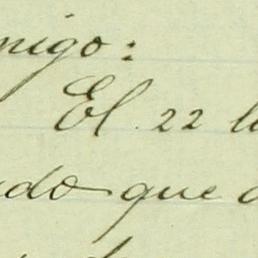 migo:
El 22 l
ado que